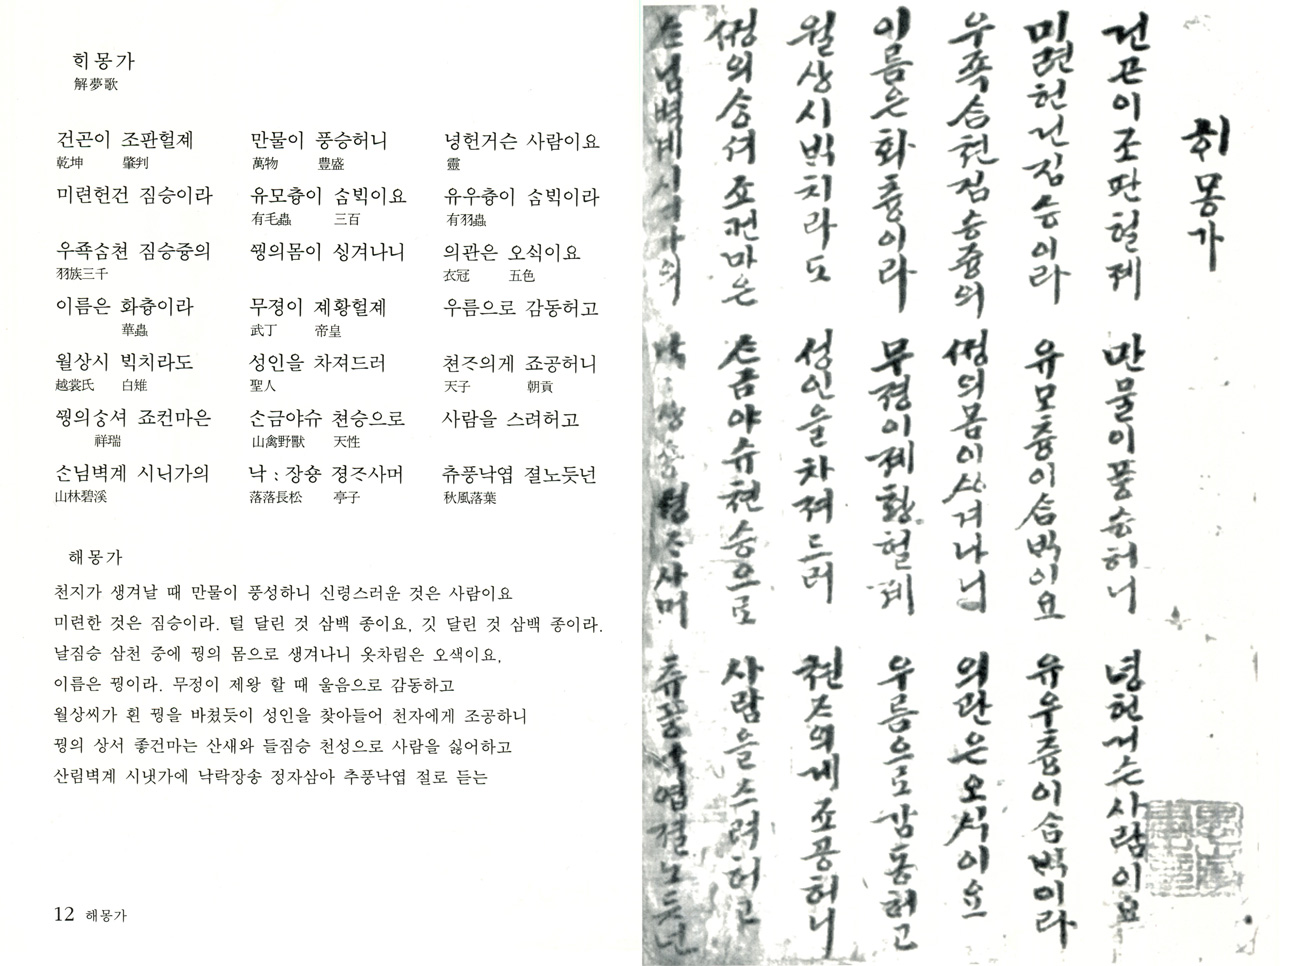 ᄒᆡ몽가
解夢歌
건곤이 조판헐졔 만물이 풍승허니 녕헌거슨 사람이요
乾坤 肇判 萬物 豊盛 靈
미련헌건 짐승이라 유모츙이 ᄉᆞᆷᄇᆡᆨ이요 유우츙이 ᄉᆞᆷᄇᆡᆨ이라
有毛蟲 三百 有羽蟲
우죡ᄉᆞᆷ쳔 짐승즁의 ᄭᅯᆼ의몸이 ᄉᆡᆼ겨나니 의관은 오ᄉᆡᆨ이요
羽族三千 衣冠 五色
이름은 화츙이라 무졍이 졔황헐졔 우름으로 감동허고
華蟲 武丁 帝皇
월상시 ᄇᆡᆨ치라도 성인을 차져드러 쳔ᄌᆞ의게 죠공허니
越裳氏 白雉 聖人 天子 朝貢
ᄭᅯᆼ의ᄉᆞᆼ셔 죠컨마은 ᄉᆞᆫ금야슈 쳔승으로 사람을 스려허고
祥瑞 山禽野獸 天性
ᄉᆞᆫ님벽계 시ᄂᆡᆨ가의 낙 : 장숑 졍ᄌᆞ사머 츄풍낙엽 졀노듯넌
山林碧溪 落落長松 亭子 秋風落葉
해몽가
천지가 생겨날 때 만물이 풍성하니 신령스러운 것은 사람이요
미련한 것은 짐승이라. 털 달린 것 삼백 종이요, 깃 달린 것 삼백 종이라.
날짐승 삼천 중에 꿩의 몸으로 생겨나니 옷차림은 오색이요,
이름은 꿩이라. 무정이 제왕 할 때 울음으로 감동하고
월상씨가 흰 꿩을 바쳤듯이 성인을 찾아들어 천자에게 조공하니
꿩의 상서 좋건마는 산새와 들짐승 천성으로 사람을 싫어하고
산림벽계 시냇가에 낙락장송 정자삼아 추풍낙엽 절로 듣는
12 해몽가
ᄒᆡ몽가
건곤이조판헐졔 만물이풍승허니 녕헌거슨사람이요
미련헌건짐승이라 유모츙이ᄉᆞᆷᄇᆡᆨ이요 유우츙이ᄉᆞᆷᄇᆡᆨ이라
우죡ᄉᆞᆷ쳔짐승즁의 ᄭᅯᆼ의몸이ᄉᆡᆼ겨나니 의관은오ᄉᆡᆨ이요
이름은화츙이라 무졍이졔황헐졔 우름으로감동허고
월상시ᄇᆡᆨ치라도 성인을차져드러 쳔ᄌᆞ의게죠공허니
ᄭᅯᆼ의ᄉᆞᆼ셔죠컨마은 ᄉᆞᆫ금야슈쳔승으로 사람을스려허고
ᄉᆞᆫ님벽계시ᄂᆡᆨ가의 낙:장숑졍ᄌᆞ사머 츄풍낙엽졀노듯넌